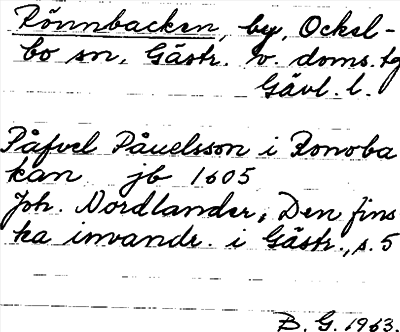 Rönnbacken, by, Ockel-
bo sn, Gästr. v. doms.tg
Gävl. l.
Påfvel Påuelsson i Ronoba
kan jb 1605
Joh. Nordlander, Den fins
ka invandr. i Gästr., s. 5
B. G. 1963.